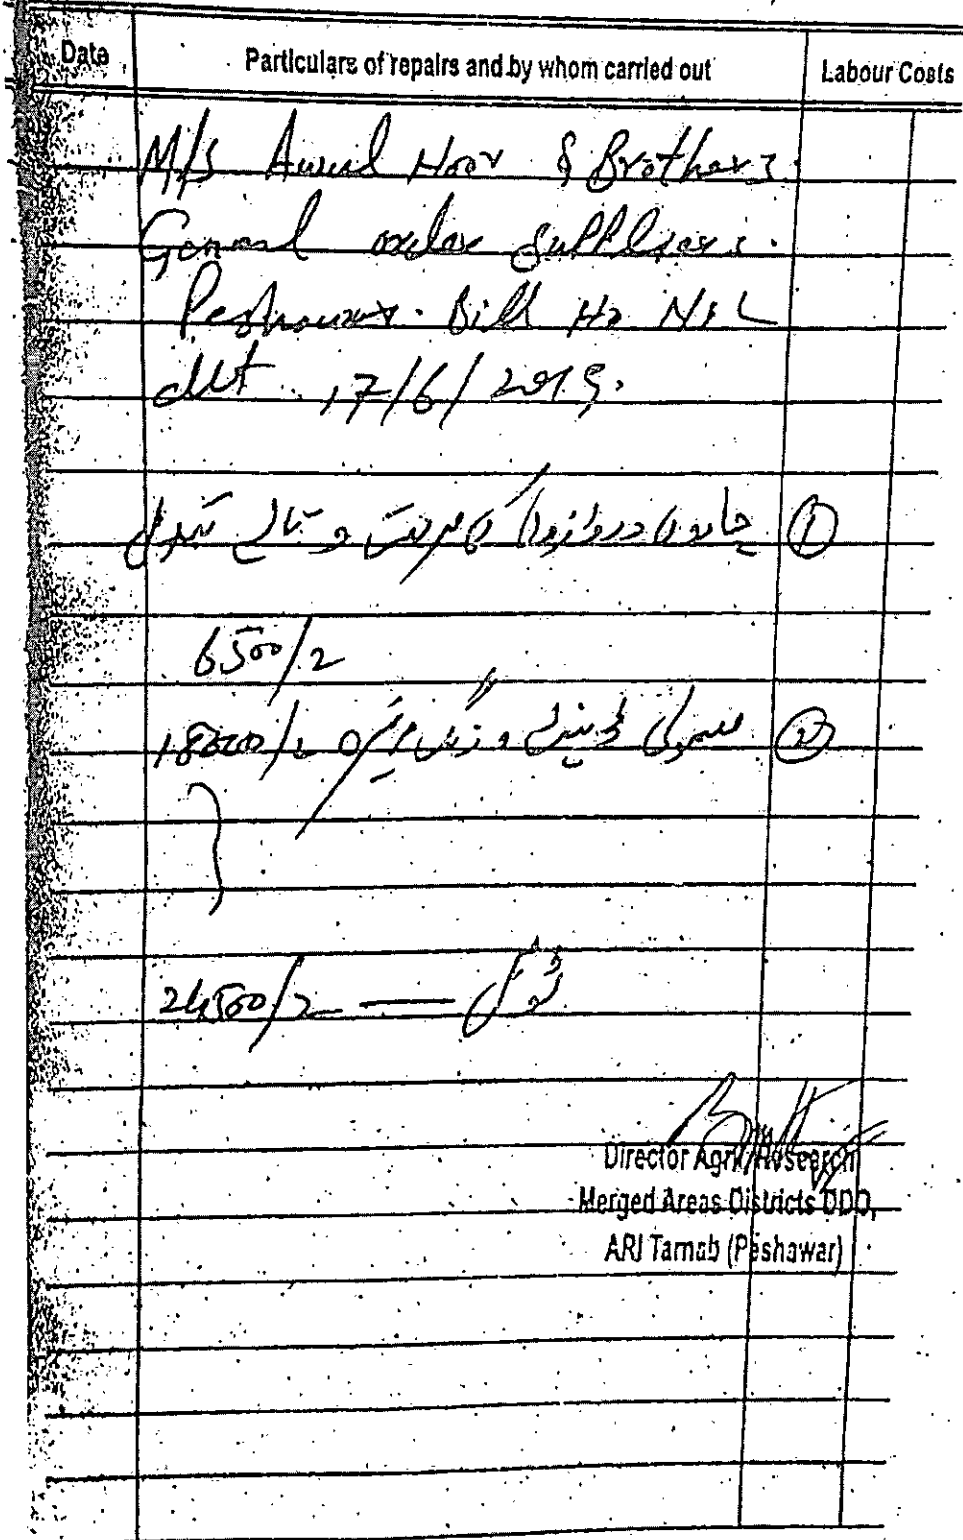 Date Particulars of repairs and by whom carried out Labour Costs
M/S Awal Noor & Brothers
General order Suppliers.
Peshawar. Bill No NIL
dt 17/6/2019.
① چاروں دروازوں کی مرمت و تالے تبدیل
6500/-
② 18000/-
ٹوٹل — 24500/-
Director Agri, Research
Merged Areas Districts DDO,
ARI Tarnab (Peshawar)